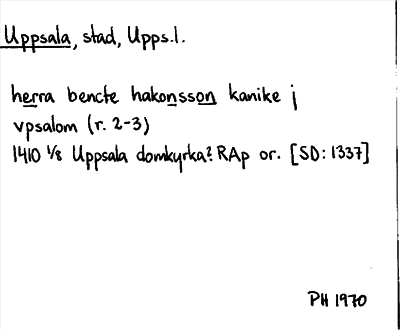 Uppsala, stad, Upps.l.
herra bencte hakonsson kanike j
vpsalom (r. 2-3)
1410 1/8 Uppsala domkyrka? RAp or. [SD: 1337]
PH 1970